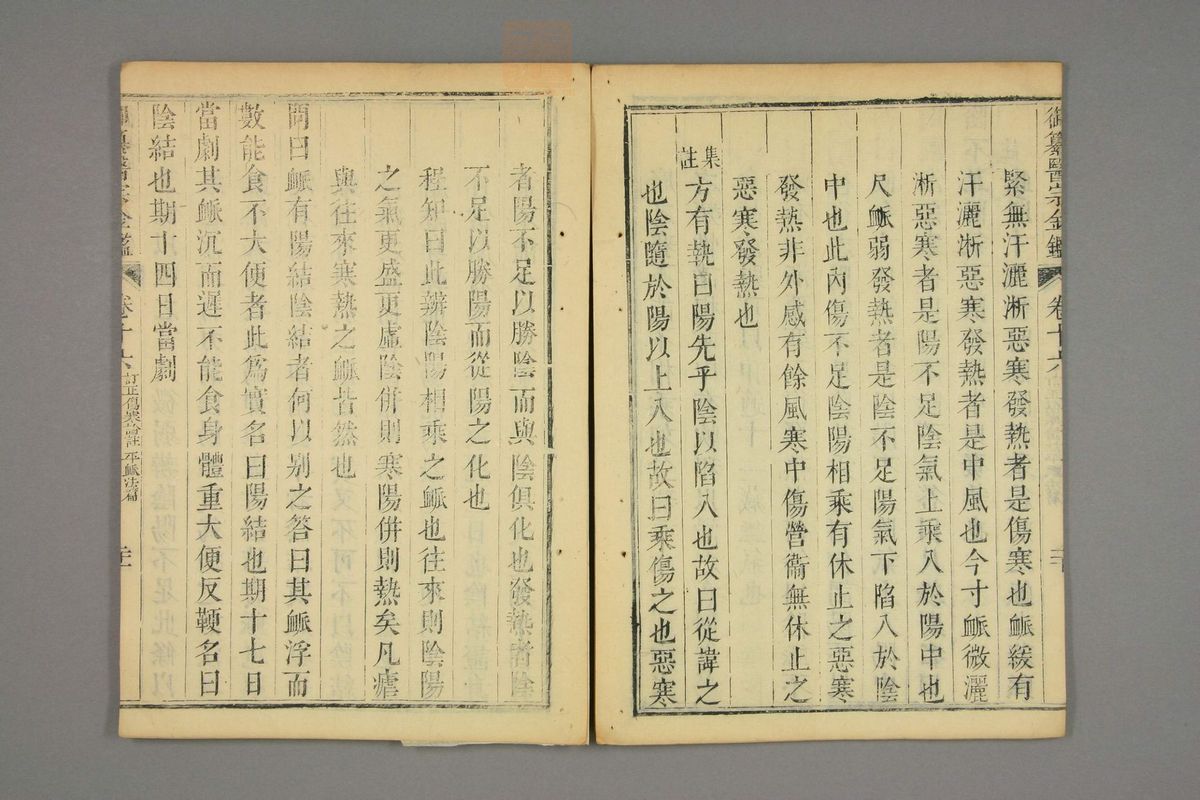 御纂醫宗金鑑 卷十六
緊無汗灑淅惡寒發熱者是傷寒也脈緩有
汗灑淅惡寒發熱者是中風也今寸脈微灑
淅惡寒者是陽不足陰氣上乘入於陽中也
尺脈弱發熱者是陰不足陽氣下陷入於陰
中也此內傷不足陰陽相乘有休止之惡寒
發熱非外感有餘風寒中傷營衞無休止之
惡寒發熱也
集註方有執曰陽先乎陰以陷入也故曰從諱之
也陰隨於陽以上入也故曰乘傷之也惡寒
者陽不足以勝陰而與陰俱化也發熱者陰
不足以勝陽而從陽之化也
程知曰此辨陰陽相乘之脈也往來則陰陽
之氣更盛更虛陰併則寒陽併則熱矣凡瘧
與往來寒熱之脈皆然也
問曰脈有陽結陰結者何以別之答曰其脈浮而
數能食不大便者此爲實名曰陽結也期十七日
當劇其脈沉而遲不能食身體重大便反鞕名曰
陰結也期十四日當劇
御纂醫宗金鑑 卷十六 訂正傷寒論註 平脈法篇